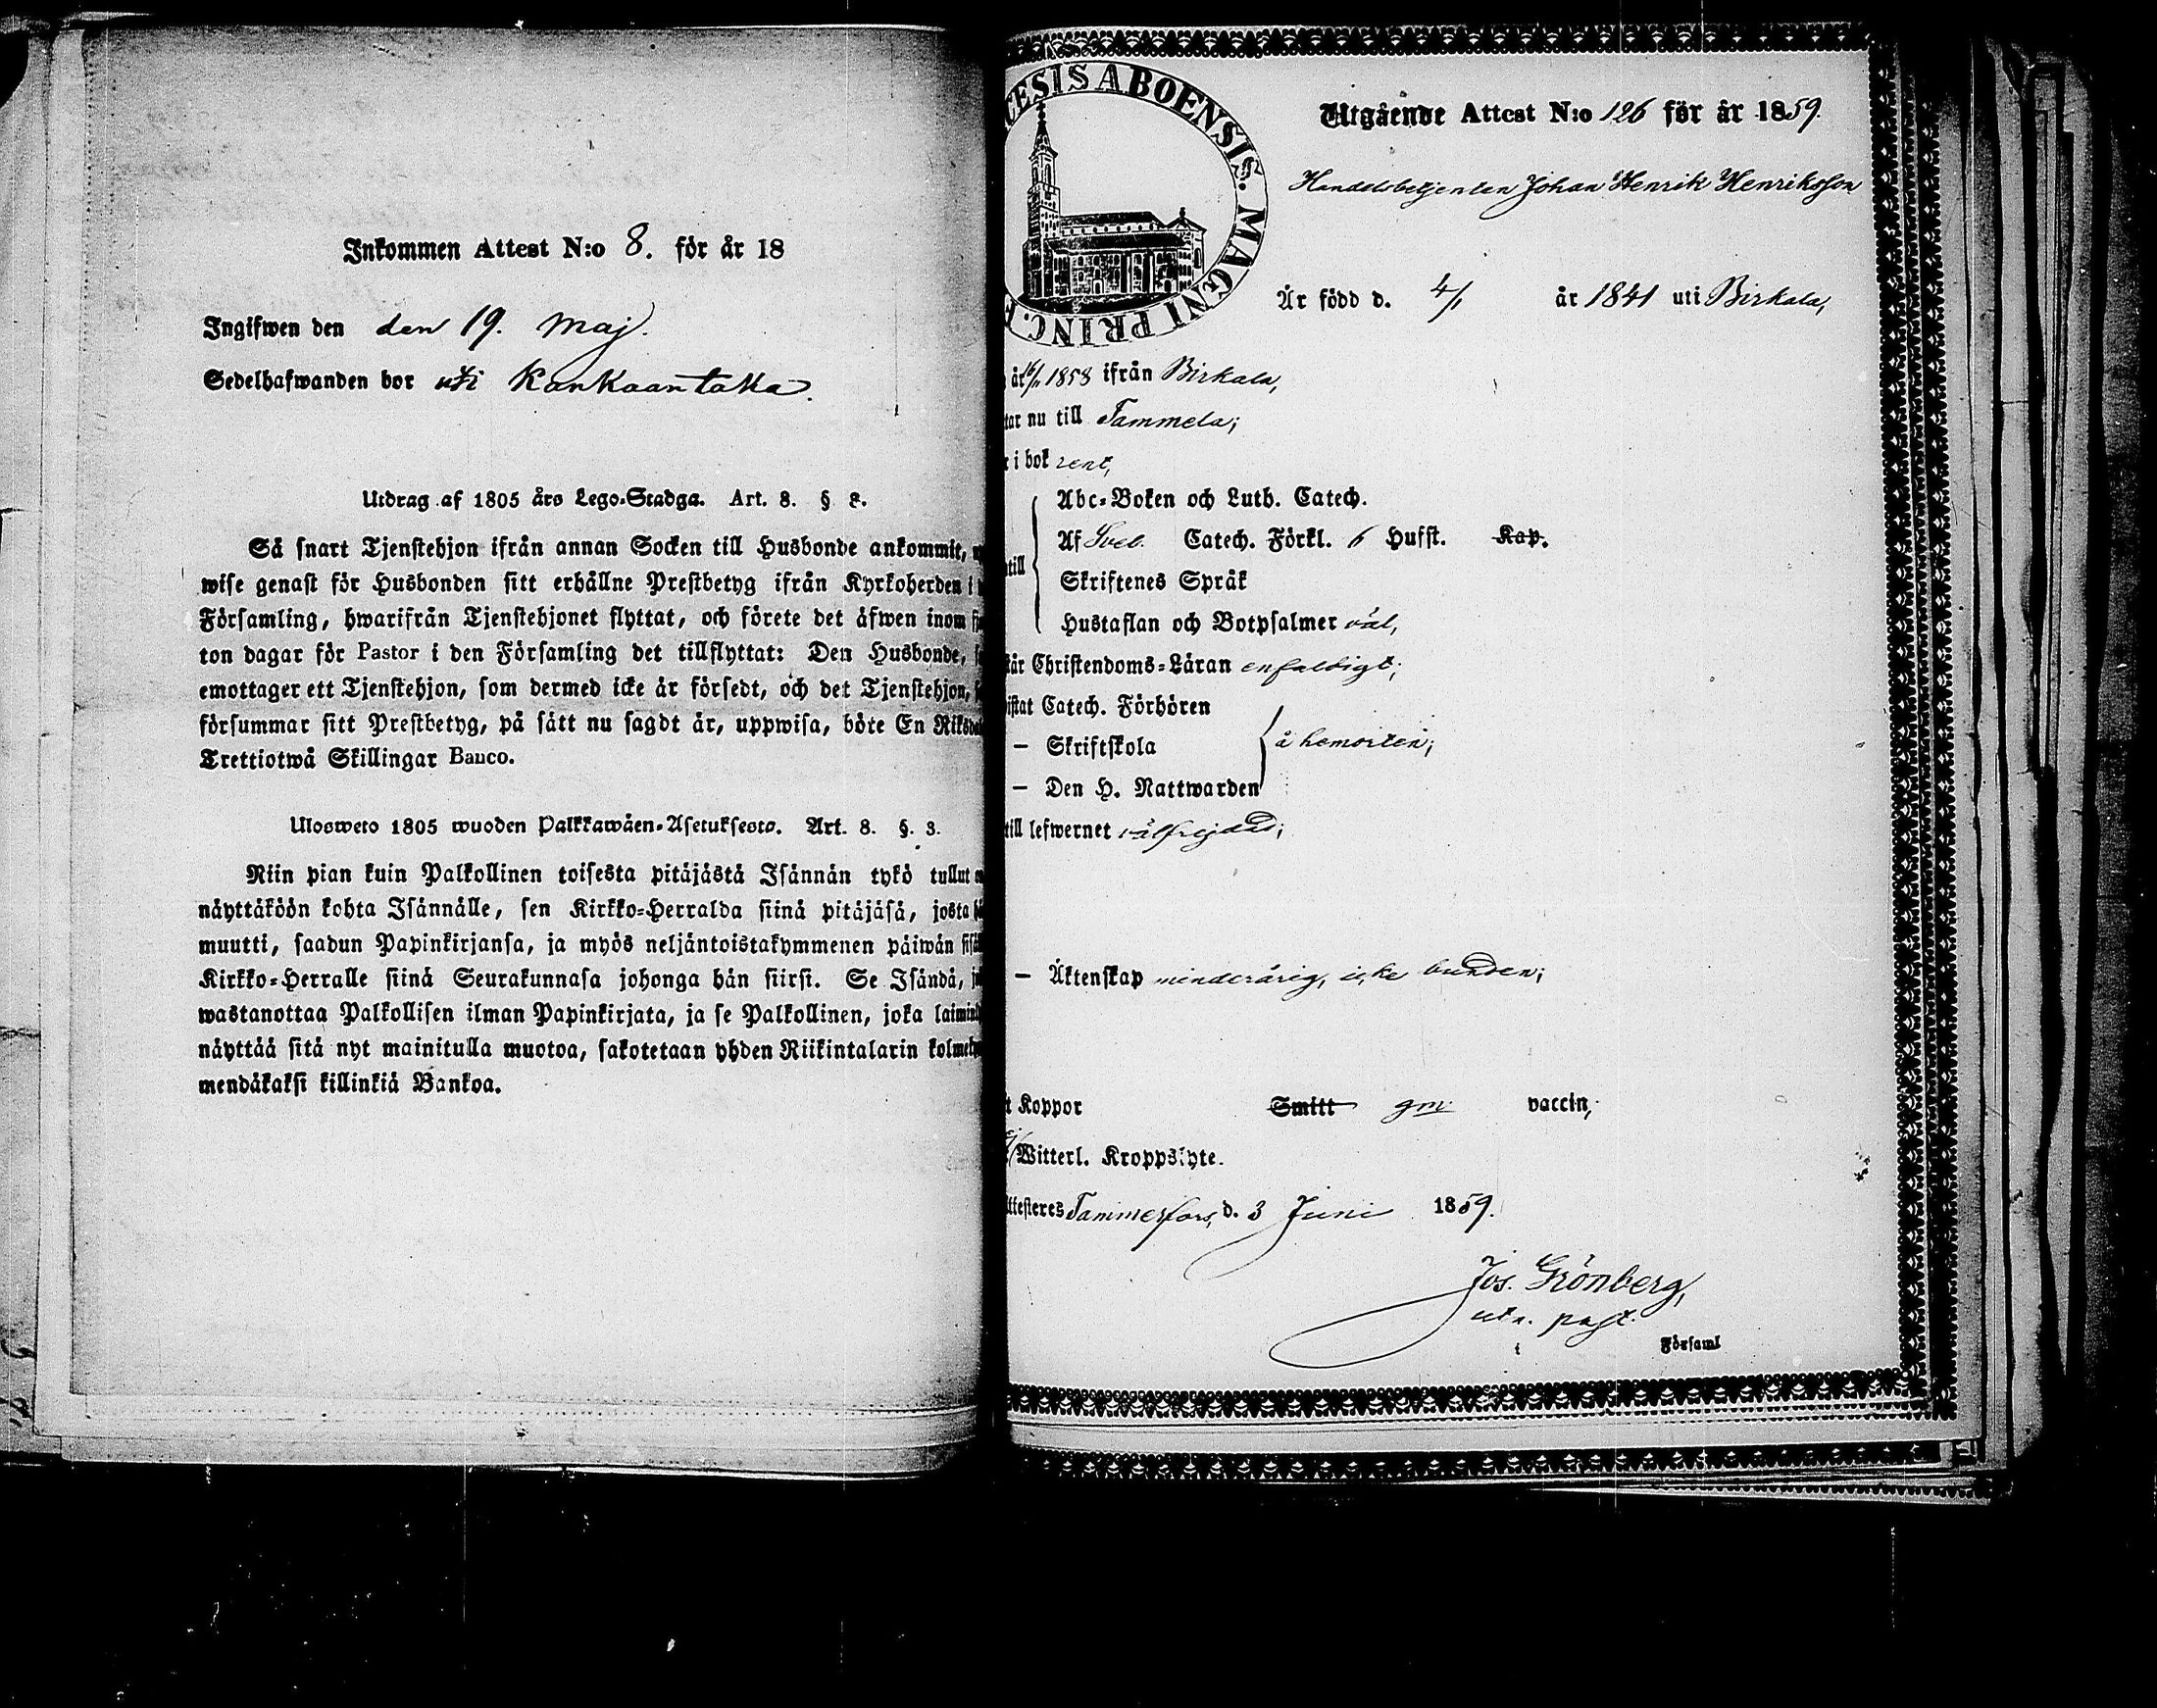 Inkommen Attest N:o 8. för år 18
Ingifwen den den 19. Maj.
Sedelhafwanden bor uti Kankaantaka.
Utdrag af 1805 års Lego-Stadga. Art. 8. §
Så snart Tjenstehjon ifrån annan Socken till Husbonde ankommit,
wise genast för Husbonden sitt erhållne Prestbetyg ifrån Kyrkoherden i
Församling, hwarifrån Tjenstehjonet flyttat, och förete det äfwen inom
ton dagar för Pastor i den Församling det tillflyttat: Den Husbonde,
emottager ett Tjenstehjon, som dermed icke är försedt, och det Tjenstehjon,
försummar sitt Prestbetyg, på sätt nu sagdt är, uppwisa, böte En Riksd
Trettiotwå Skillingar Banco.
Ulosweto 1805 wuoden Palkkawäen-Asetuksesta. Art. 8. §. 3.
Niin pian kuin Palkollinen toisesta pitäjästä Isännän tykö tullut
näyttäköön kohta Isännälle, sen Kirkko-Herralda siinä pitäjäsä, josta
muutti, saadun Papinkirjansa, ja myös neljäntoistakymmenen päiwän sisä
Kirkko-Herralle siinä Seurakunnasa johonga hän siirsi. Se Isändä,
wastanottaa Palkollisen ilman Papinkirjata, ja se Palkollinen, joka laimin
näyttää sitä nyt mainitulla muotoa, sakotetaan yhden Riikintalarin kolme
mendäkaksi killinkiä Bankoa.
CESIS ABOENSIS. MAGNI PRINC.
Utgående Attest N:o 126 för år 1859.
Handelsbetjenten Johan Henrik Henriksson
Är född d. 4/1 år 1841 uti Birkala,
år 16/11 1858 ifrån Birkala,
tar nu till Tammela;
i bok rent,
Abc-Boken och Luth. Catech.
Af Sveb. Catech. Förkl. 6 Hufst. Kap.
till Skriftenes Språk
Hustaflan och Botpsalmer väl,
tår Christendoms-Läran enfaldigt;
istat Catech. Förhören
– Skriftskola å hemorten;
– Den H. Nattwarden
till lefwernet välfrejdad;
– Äktenskap minderårig, icke bunden;
t Koppor Smitt gm vaccin,
ej Witterl. Kroppslyte.
ttesteres Tammerfors, d. 3 Juni 1859.
Jos. Grönberg,
utn. past.
i Församl